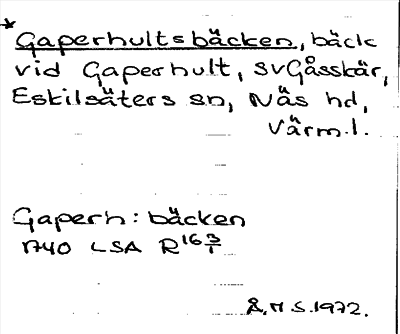 *Gaperhultsbäcken, bäck
vid Gaperhult, sv Gåsskär,
Eskilsäters sn, Näs hd,
Värml.
Gaperh:bäcken
1740 LSA R16 3/1
Å.H.S. 1972.